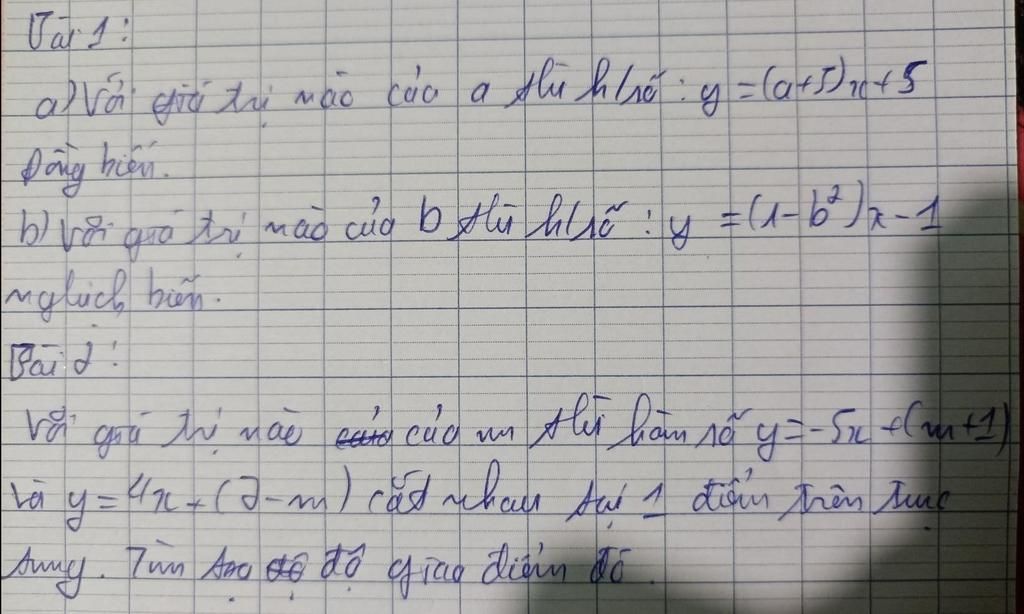 Bài 1:
a) Với giá trị nào của a thì h/số: y = (a+5)x+5
Đồng biến.
b) Với giá trị nào của b thì h/số: y = (1-b²)x-1
nghịch biến.
Bài 2:
Với giá trị nào của m thì hàm số y=-5x+(m+1)
Và y=4x+(7-m) cắt nhau tại 1 điểm trên trục
tung. Tìm toạ độ giao điểm đó.